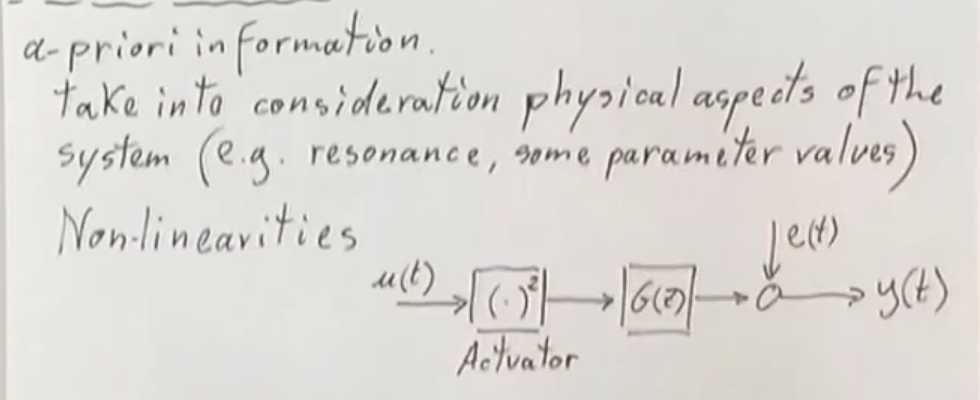 a-priori information.
take into consideration physical aspects of the
system (e.g. resonance, some parameter values)
Non-linearities
e(t)
u(t) (·)² G(z) y(t)
Actuator